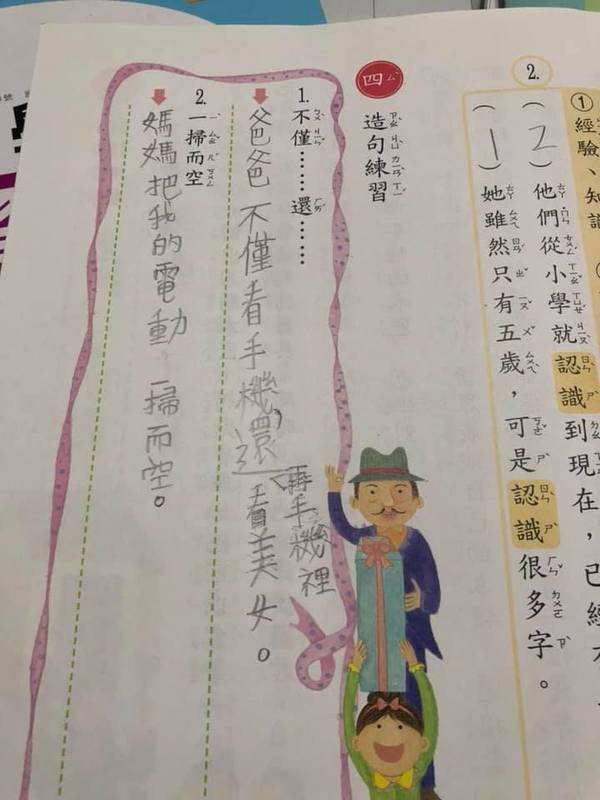 ①經驗、知識
2.
(2)他們從小學就認識到現在，已經
(1)她雖然只有五歲，可是認識很多字。
四
造句練習
1.不僅……還……
爸爸不僅看手機，還再手機裡看美女。
2.一掃而空
媽媽把我的電動一掃而空。
號